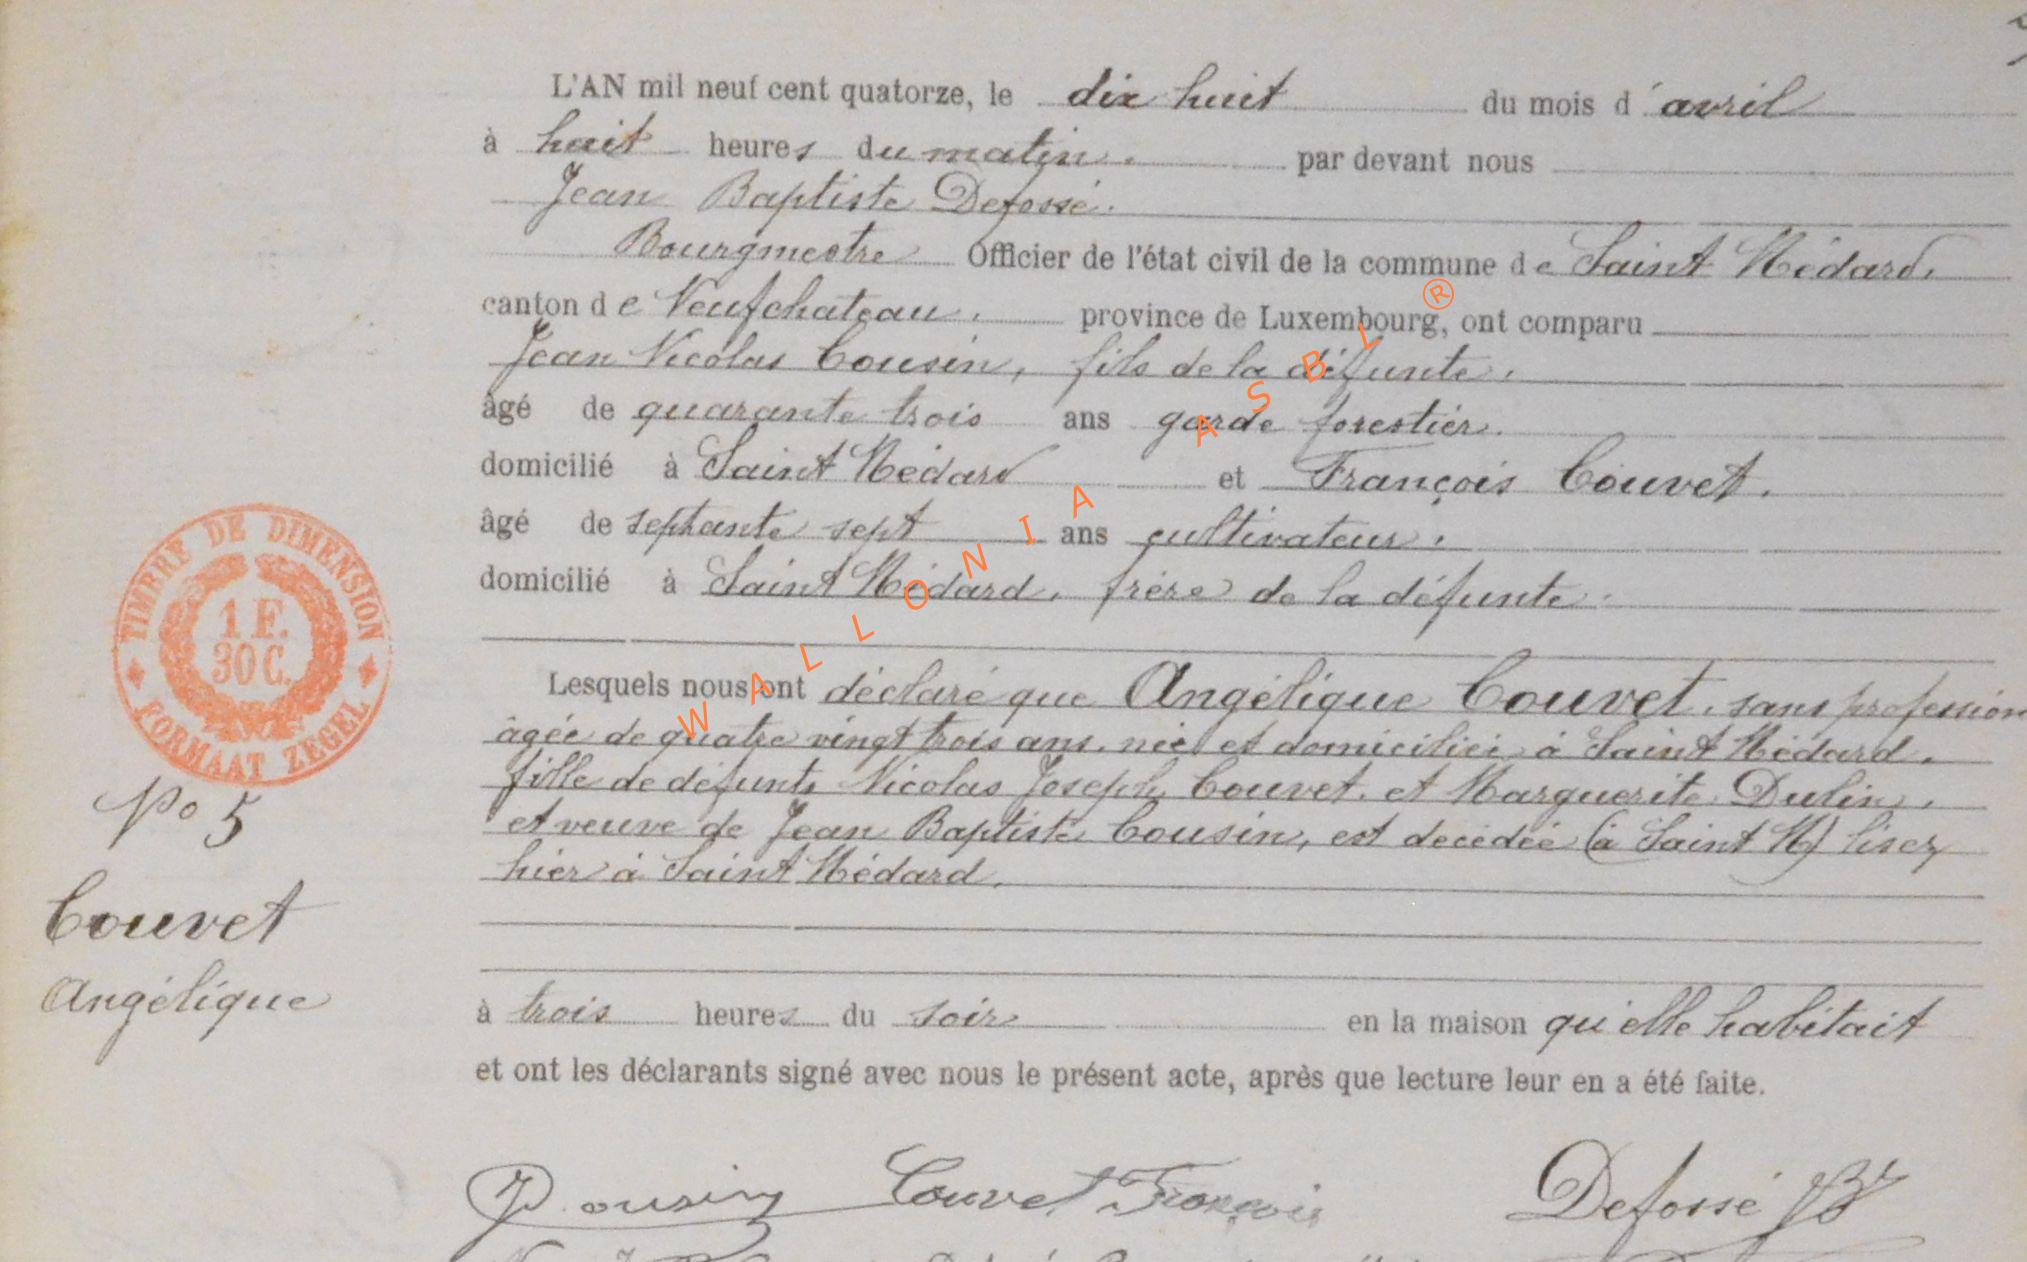 L'AN mil neuf cent quatorze, le dix huit du mois d'avril
à huit heures du matin. par devant nous
Jean Baptiste Defossé.
Bourgmestre Officier de l'état civil de la commune de Saint Médard.
canton de Neufchateau. province de Luxembourg, ont comparu
Jean Nicolas Cousin, fils de la défunte.
âgé de quarante trois ans garde forestier.
domicilié à Saint Médard et François Couvet.
âgé de septante sept ans cultivateur.
domicilié à Saint Médard, frère de la défunte.
Lesquels nous ont déclaré que Angélique Couvet, sans profession
âgée de quatre vingt trois ans, née et domiciliée à Saint Médard,
fille de défunts Nicolas Joseph Couvet, et Marguerite Dulin,
et veuve de Jean Baptiste Cousin, est décédée (à Saint M) lisez
hier à Saint Médard.
à trois heures du soir en la maison qu'elle habitait
et ont les déclarants signé avec nous le présent acte, après que lecture leur en a été faite.
Cousin Couvet François Defossé JB
TIMBRE DE DIMENSION
1 F.
30 C.
FORMAAT ZEGEL
No 5
Couvet
Angélique
WALLONIA ASBL ®